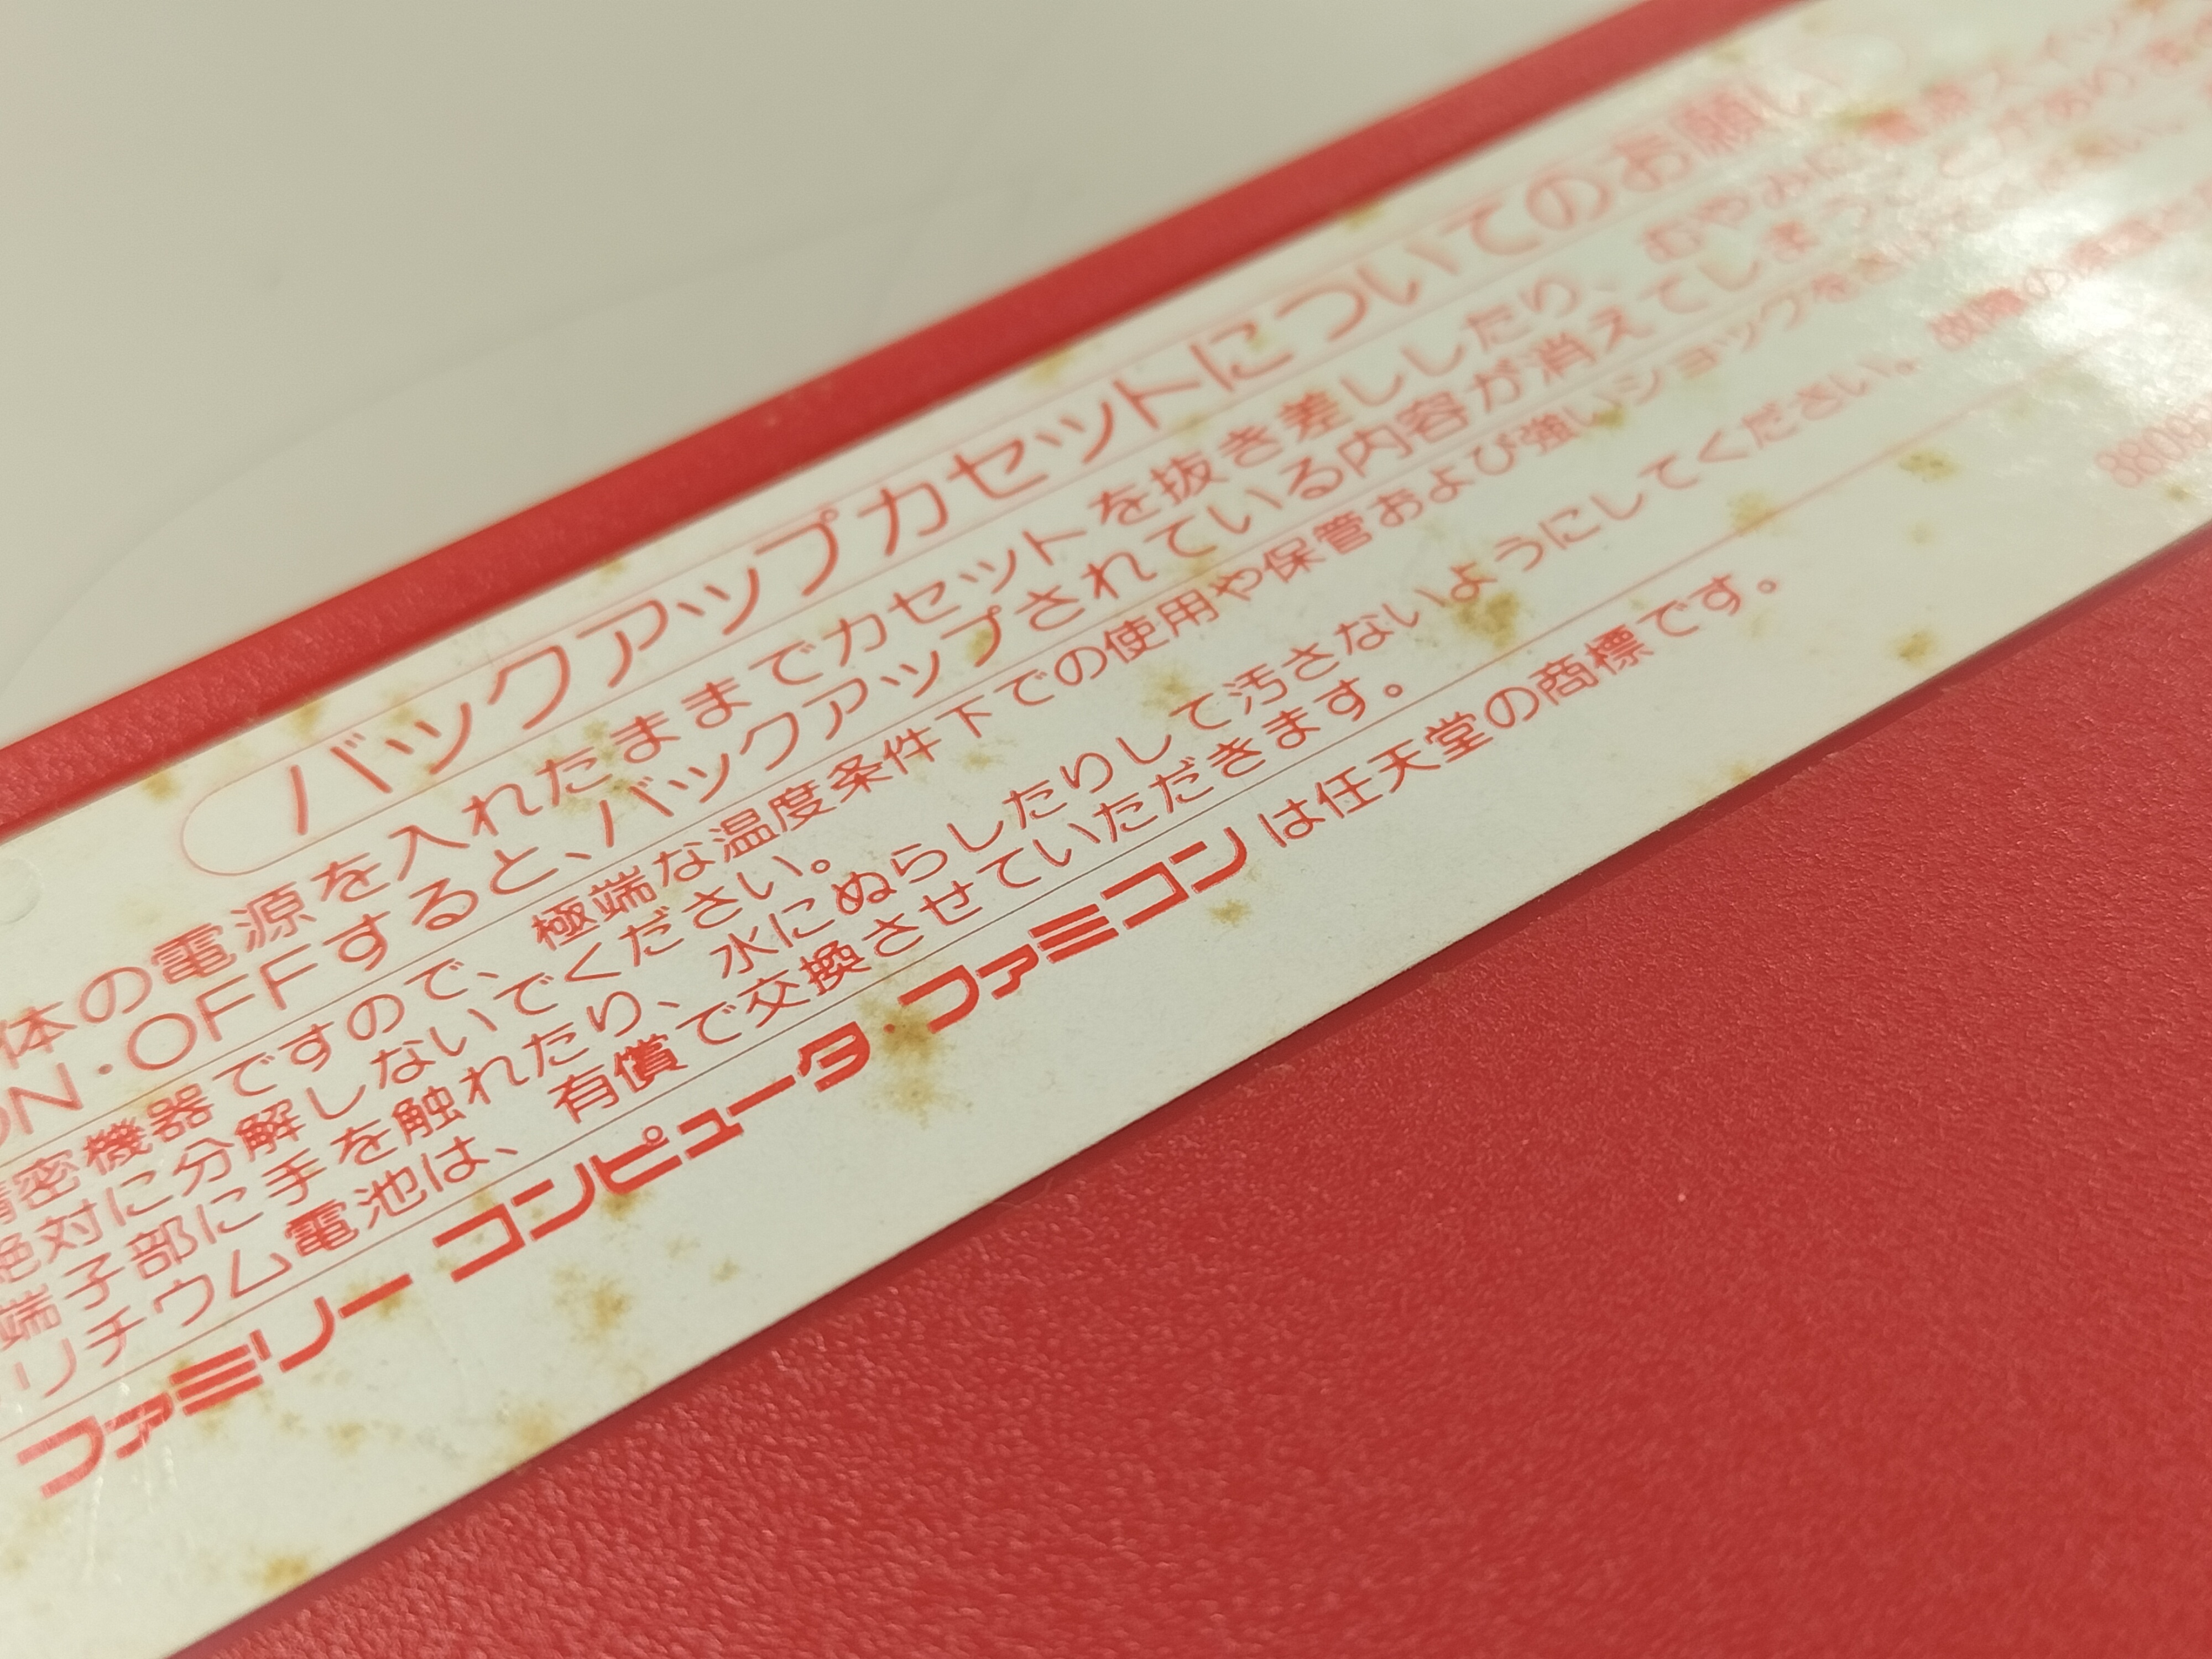 バックアップカセットについてのお願い
体の電源を入れたままでカセットを抜き差ししたり、むやみに電源スイッ
ON・OFFすると、バックアップされている内容が消えてしまうことがあり
密機器ですので、極端な温度条件下での使用や保管および強いショックを
絶対に分解しないでください。
端子部に手を触れたり、水にぬらしたりして汚さないようにしてください。故障の原因と
リチウム電池は、有償で交換させていただきます。
ファミリーコンピュータ・ファミコンは任天堂の商標です。